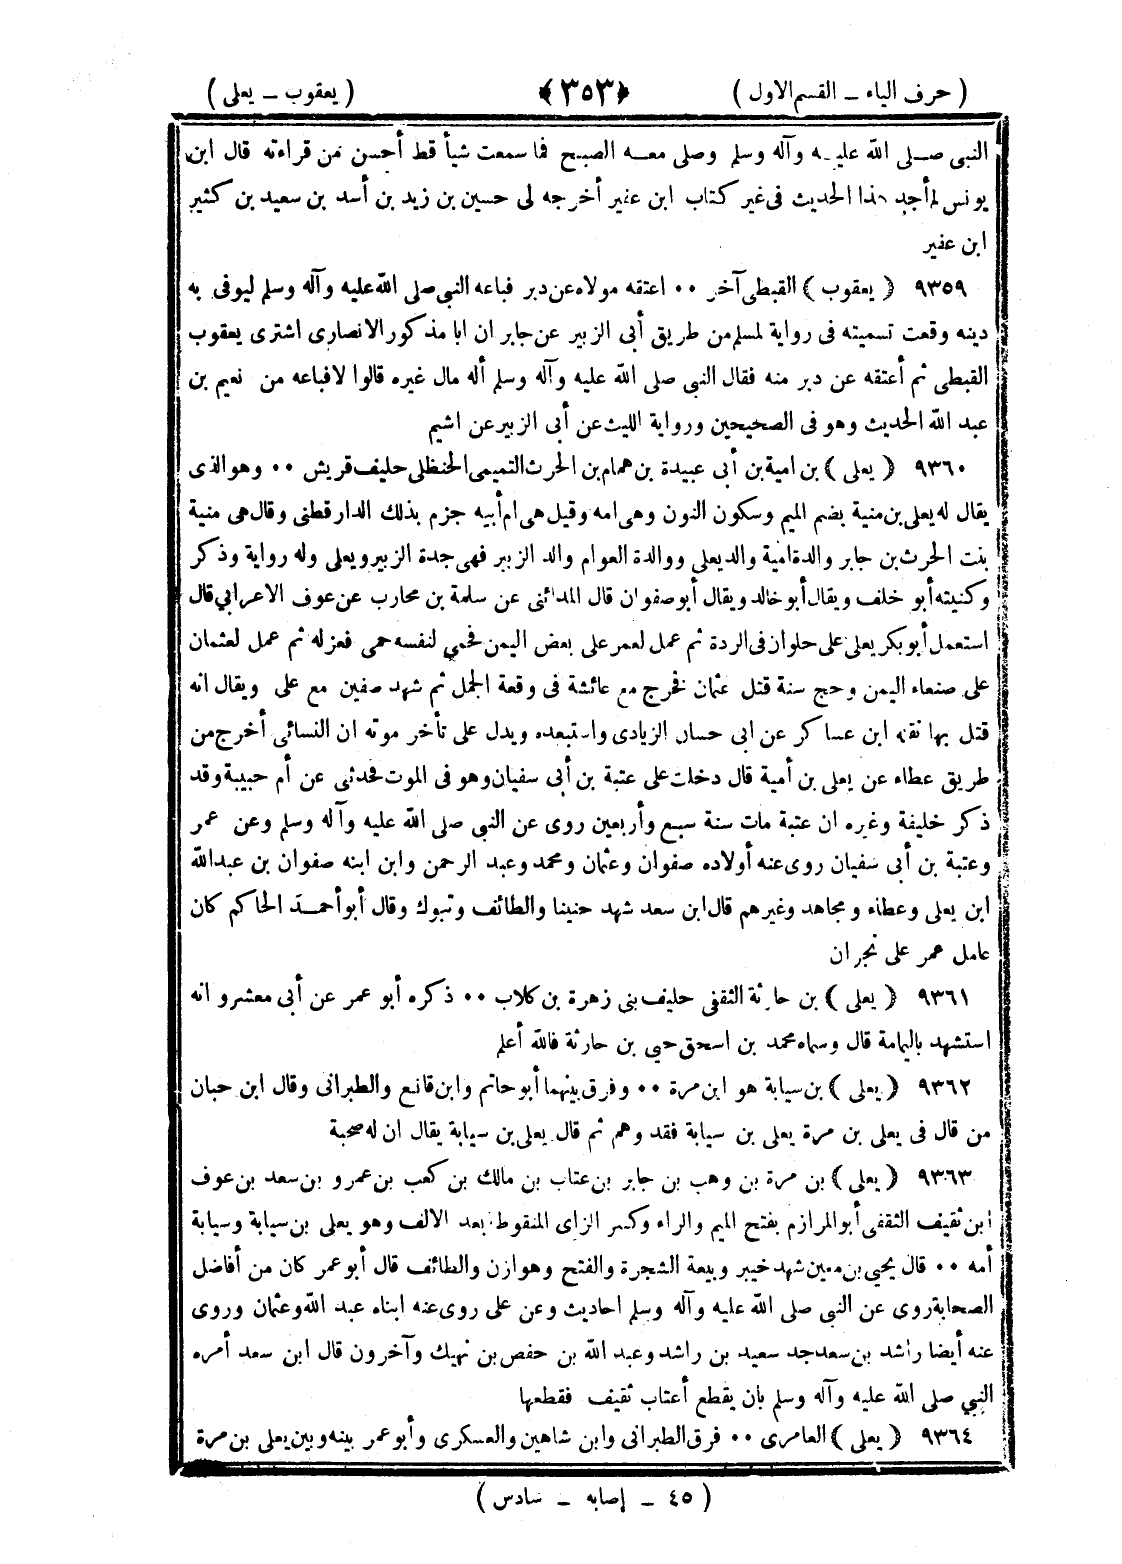 ( حرف الياء ــ القسم الاول ) ﴿٣٥٣﴾ ( يعقوب ــ يعلى )
النبى صلى الله عليه وآله وسلم وصلى معه الصبح فما سمعت شيأ قط أحسن من قراءته قال ابن
يونس لم أجد هذا الحديث فى غير كتاب ابن عفير أخرجه لى حسين بن زيد بن أسد بن سعيد بن كثير
ابن عفير
٩٣٥٩ ( يعقوب ) القبطى آخر ٠٠ اعتقه مولاه عن دبر فباعه النبى صلى الله عليه وآله وسلم ليوفى به
دينه وقعت تسميته فى رواية لمسلم من طريق أبى الزبير عن جابر ان ابا مذكور الانصارى اشترى يعقوب
القبطى ثم أعتقه عن دبر منه فقال النبى صلى الله عليه وآله وسلم أله مال غيره قالوا لا فباعه من نعيم بن
عبد الله الحديث وهو فى الصحيحين ورواية الليث عن أبى الزبير عن اشيم
٩٣٦٠ ( يعلى ) بن امية بن أبى عبيدة بن همام بن الحرث التميمى الحنظلى حليف قريش ٠٠ وهو الذى
يقال له يعلى بن منية بضم الميم وسكون النون وهى امه وقيل هى ام أبيه جزم بذلك الدارقطنى وقال هى منية
بنت الحرث بن جابر والدة امية والد يعلى ووالدة العوام والد الزبير فهى جدة الزبير ويعلى وله رواية وذكر
وكنيته أبو خلف ويقال أبو خالد ويقال أبو صفوان قال المدائنى عن سلمة بن محارب عن عوف الاعرابي قال
استعمل أبو بكر يعلى على حلوان فى الردة ثم عمل لعمر على بعض اليمن فحمي لنفسه حمى فعزله ثم عمل لعثمان
على صنعاء اليمن وحج سنة قتل عثمان فخرج مع عائشة فى وقعة الجمل ثم شهد صفين مع على ويقال انه
قتل بها نقله ابن عساكر عن ابى حسان الزيادى واستبعده ويدل على تأخر موته ان النسائى أخرج من
طريق عطاء عن يعلى بن أمية قال دخلت على عتبة بن أبى سفيان وهو فى الموت فحدثنى عن أم حبيبة وقد
ذكر خليفة وغيره ان عتبة مات سنة سبع وأربعين روى عن النبى صلى الله عليه وآله وسلم وعن عمر
وعتبة بن أبى سفيان روى عنه أولاده صفوان وعثمان ومحمد وعبد الرحمن وابن ابنه صفوان بن عبد الله
ابن يعلى وعطاء ومجاهد وغيرهم قال ابن سعد شهد حنينا والطائف وتبوك وقال أبو أحمد الحاكم كان
عامل عمر على نجران
٩٣٦١ ( يعلى ) بن حارثة الثقفى حليف بنى زهرة بن كلاب ٠٠ ذكره أبو عمر عن أبى معشر وانه
استشهد باليمامة قال وسماه محمد بن اسحق حيي بن حارثة فالله أعلم
٩٣٦٢ ( يعلى ) بن سيابة هو ابن مرة ٠٠ وفرق بينهما أبو حاتم وابن قانع والطبرانى وقال ابن حبان
من قال فى يعلى بن مرة يعلى بن سيابة فقد وهم ثم قال يعلى بن سيابة يقال ان له صحبة
٩٣٦٣ ( يعلى ) بن مرة بن وهب بن جابر بن عتاب بن مالك بن كعب بن عمرو بن سعد بن عوف
ابن ثقيف الثقفى أبو المرازم بفتح الميم والراء وكسر الزاى المنقوط بعد الالف وهو يعلى بن سيابة وسيابة
أمه ٠٠ قال يحيى بن معين شهد خيبر وبيعة الشجرة والفتح وهوازن والطائف قال أبو عمر كان من أفاضل
الصحابة روى عن النبى صلى الله عليه وآله وسلم احاديث وعن على روى عنه ابناه عبد الله وعثمان وروى
عنه أيضا راشد بن سعد جد سعيد بن راشد وعبد الله بن حفص بن نهيك وآخرون قال ابن سعد أمره
النبي صلى الله عليه وآله وسلم بان يقطع أعتاب ثقيف فقطعها
٩٣٦٤ ( يعلى ) العامرى ٠٠ فرق الطبرانى وابن شاهين والعسكرى وأبو عمر بينه وبين يعلى بن مرة
( ٤٥ ــ إصابه ــ سادس )